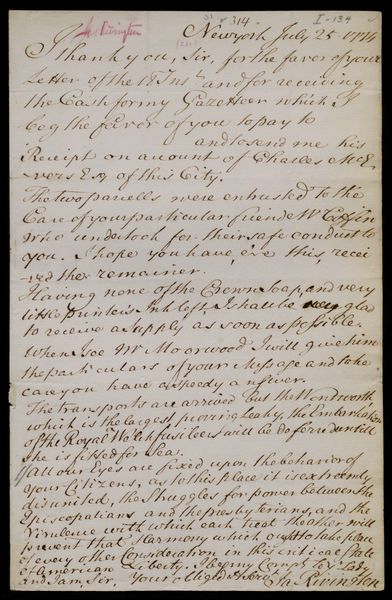 314.
I-134
Js Rivington
New york July 25. 1774
I thank you, Sir, for the favor of your
Letter of the 18 Inst. and for receiving
the Cash for my Gazetteer which I
beg the favor of you to pay to
and to send me his
Receipt on account of Charles McE-
vers Esq of this City.
The two parcells were entrusted to the
Care of your particular friend Mr Coffin
who undertook for their safe conduct to
you. I hope you have ere this recei-
ved the remainer.
Having none of the Crown Soap, and very
little printers Ink left, I shall be very glad
to receive a Supply as soon as possible.
When I see Mr Moorwood I will give him
the particulars of your Message and take
care you have a speedy answer.
The transports are arrived but the Wandsworth
which is the largest, proving Leaky, the Embarkation
of the Royal Welch fusileers will be deferred untill
she is fitted for sea.
All our Eyes are fixed upon the behavior of
your Citizens, as to this place it is extreemly
disunited, the Struggles for power between the
Episcopalians and the presbyterians, and the
Virulence with which each treat the other will
prevent that Harmony which ought to take place
of every other Consideration in this critical State
of American Liberty. I beg my Compts. to yr Lady
and I am, Sir, Your obliged Servt
Jas Rivington